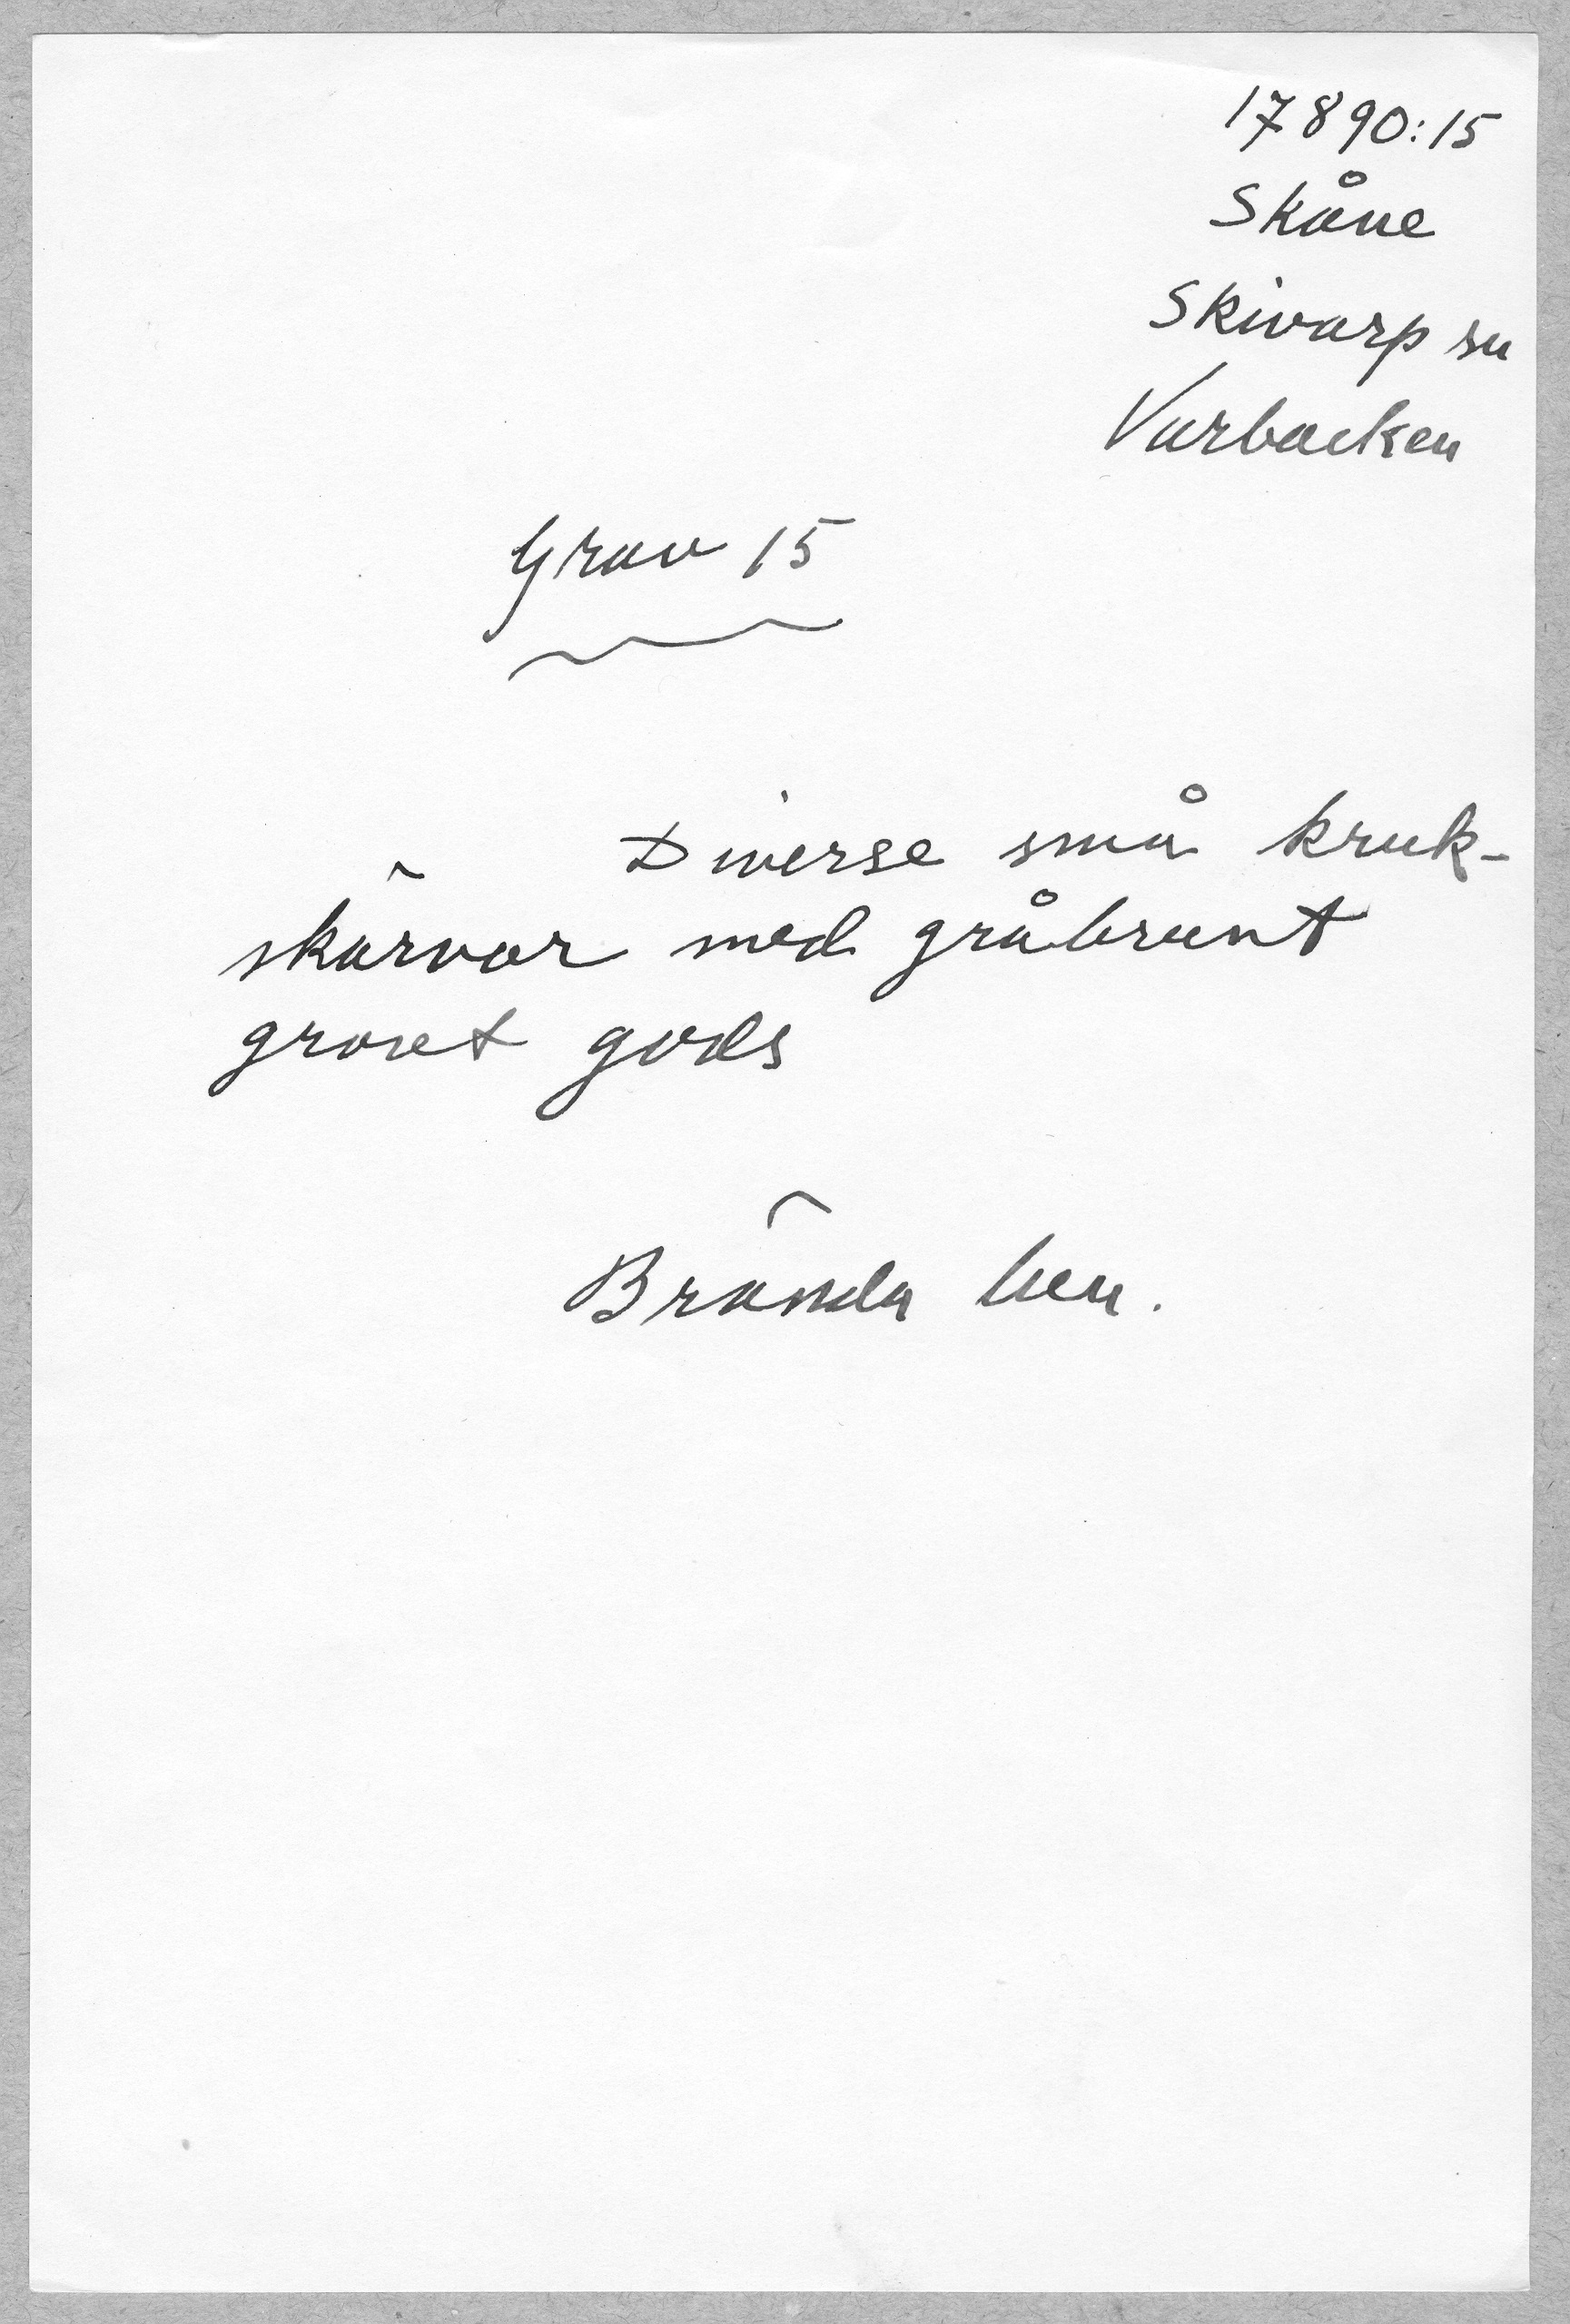 17890:15
Skåne
Skivarp sn
Varbacken
Grav 15
Diverse små kruk-
skärvor med gråbrunt
groset gods
Brända ben.